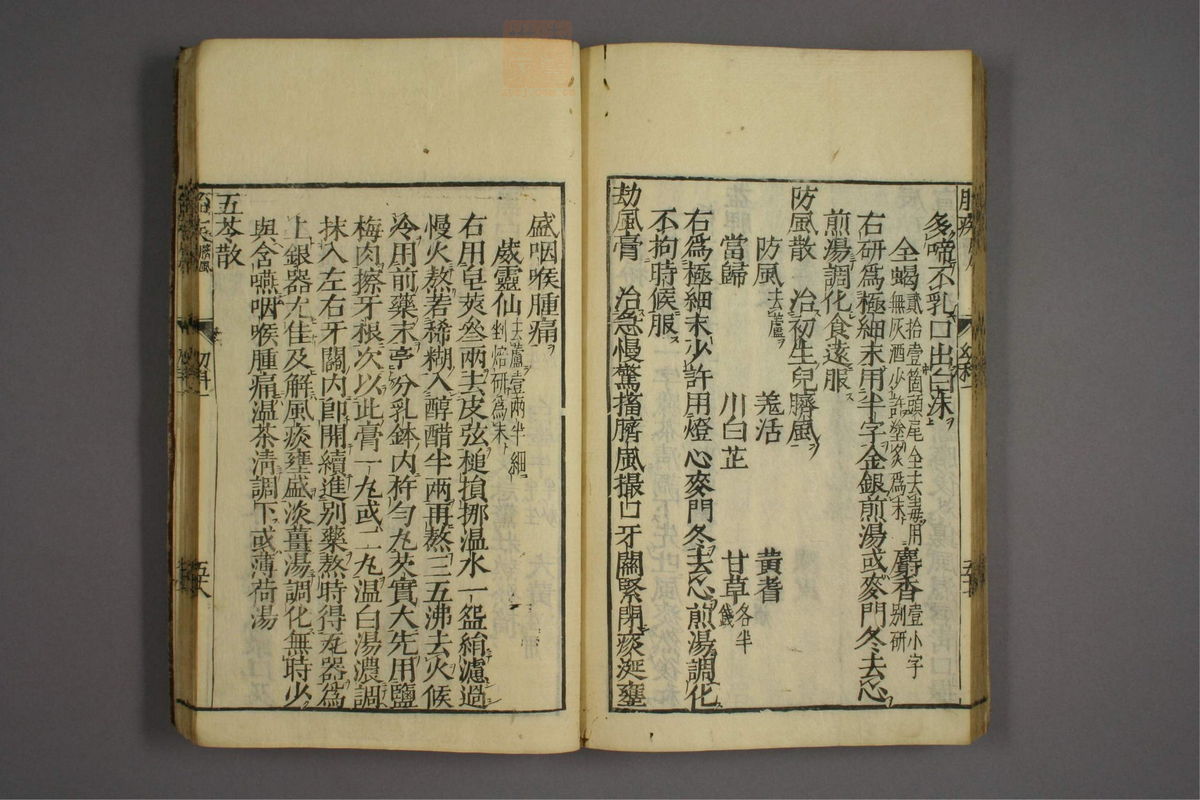 多啼不乳口出白沫
全蝎貳拾壹箇頭尾全去毒用無灰酒少許塗炙爲末 麝香壹小字別研
右研爲極細末用半字金銀煎湯或麥門冬去心
煎湯調化食遠服
防風散 治初生兒臍風
防風去蘆 羗活 黃耆
當歸 川白芷 甘草各半錢
右爲極細末少許用燈心麥門冬去心煎湯調化
不拘時候服
劫風膏 治急慢驚搐臍風撮口牙關緊閉痰涎壅
盛咽喉腫痛
葳靈仙去蘆壹兩半細剉焙研爲末
右用皂莢叁兩去皮弦槌損挪溫水一盌絹濾過
慢火熬若稀糊入醇醋半兩再熬三五沸去火候
冷用前藥末亭分乳鉢内杵勻丸芡實大先用鹽
梅肉擦牙根次以此膏一丸或二丸溫白湯濃調
抹入左右牙關内卽開續進別藥熬時得瓦器爲
上銀器尤佳及解風痰壅盛淡薑湯調化無時少
與含嚥咽喉腫痛溫茶淸調下或薄荷湯
五苓散
五十八